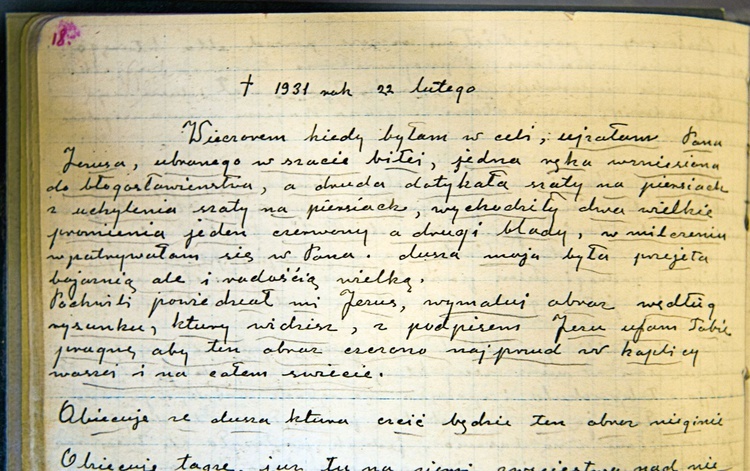 18.
† 1931 rok 22 lutego
Wieczorem kiedy byłam w celi, ujrałam Pana
Jezusa, ubranego w szacie białej, jedna ręka wzniesiona
do błogosławieństwa, a druda dotykała szaty na piersiach
z uchylenia szaty na piersiach, wychodziły dwa wielkie
promienia jeden czerwony a drugi blady, w milczeniu
wpatrywałam się w Pana. dusza moja była przejęta
bojaznią ale i radością wielką.
Pochwili powiedział mi Jezus, wymaluj obraz według
rysunku, ktury widzisz, z podpisem Jezu ufam Tobie
pragnę aby ten obraz czczono najprzud w kaplicy
waszej i na całem świecie.
Obiecuje że dusza ktura czcić będzie ten obraz nieginie
Obiecuję tagże, już tu na ziemi zwycięstwo nad nie